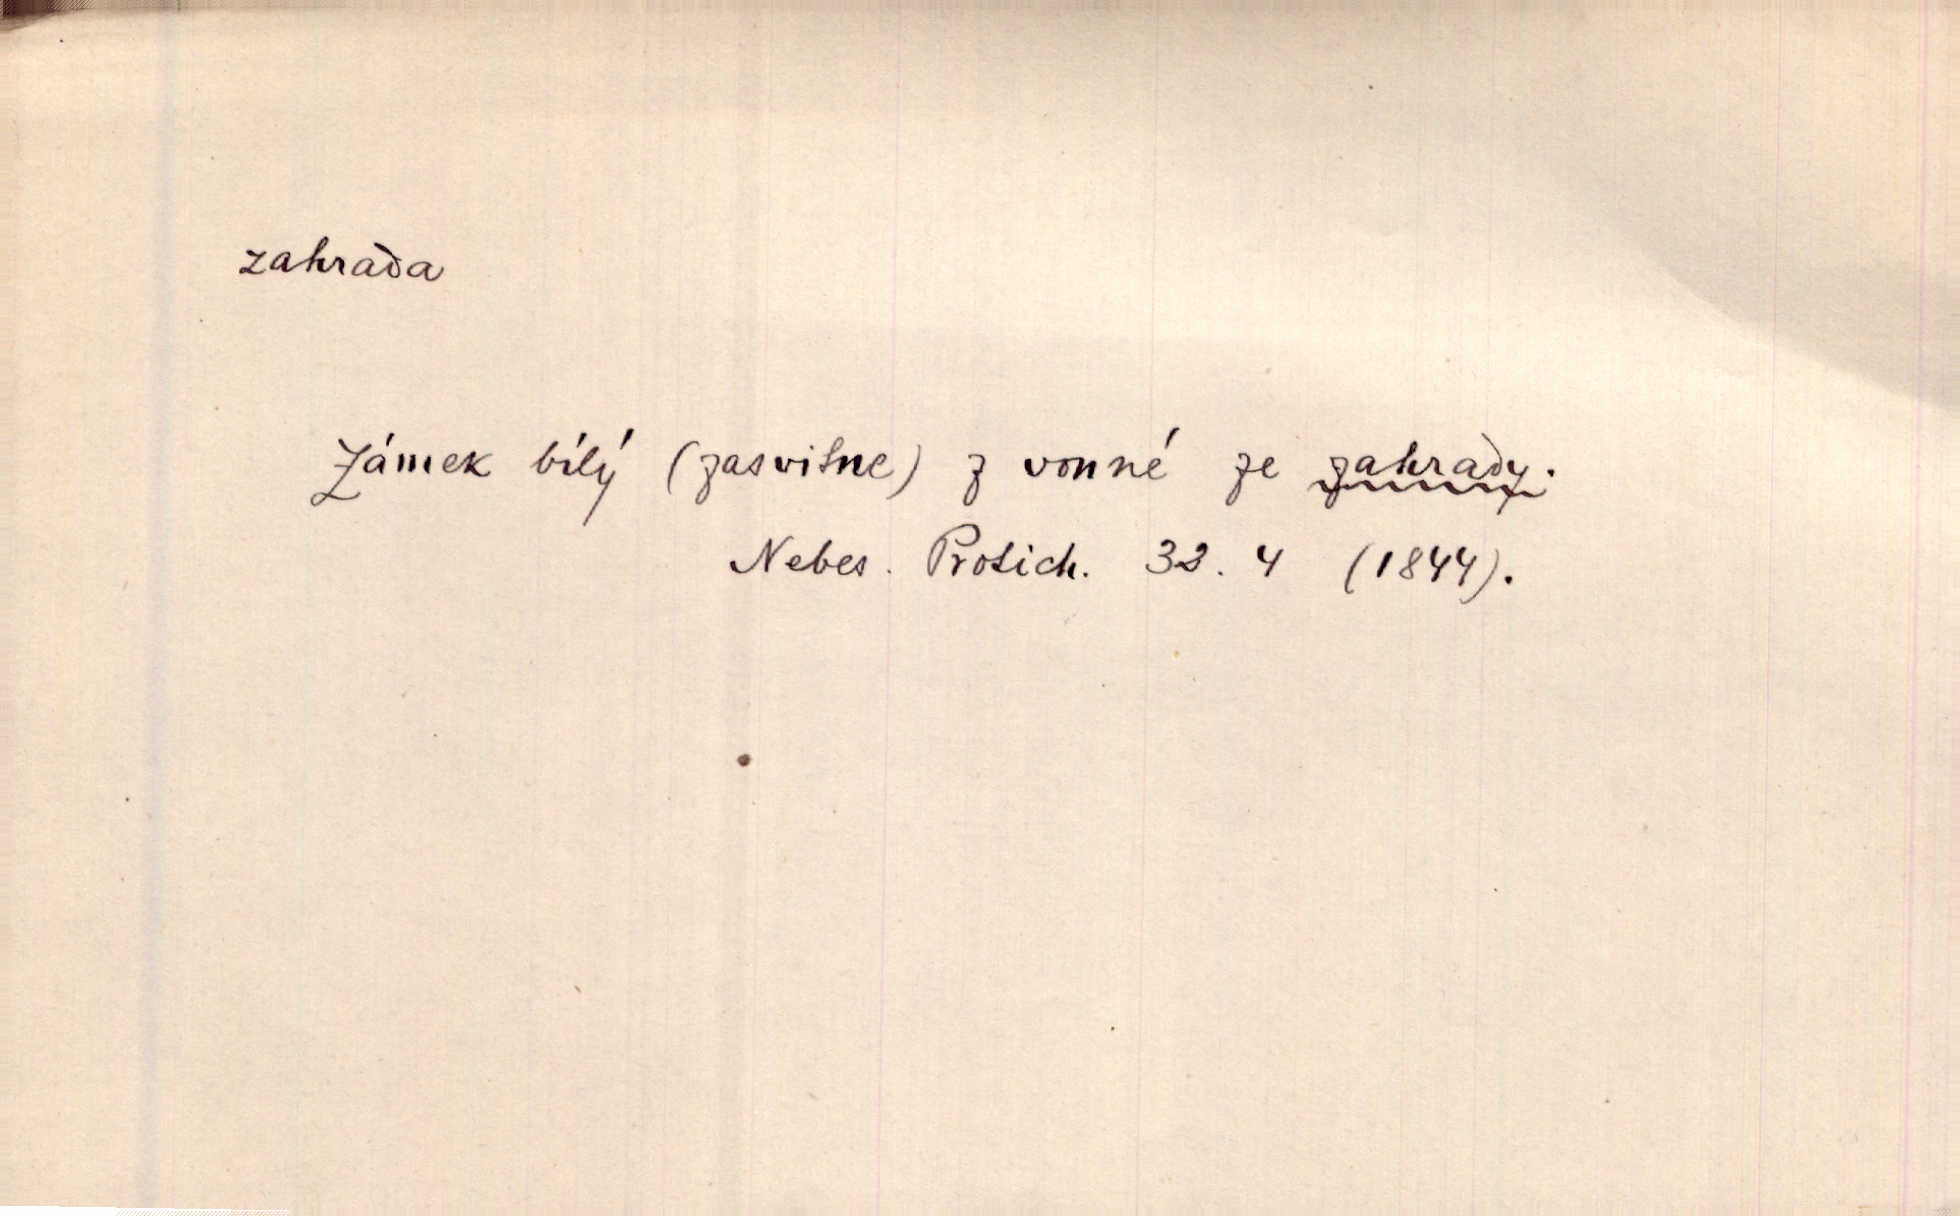 zahrada
Zámek bílý (zasvitne) z vonné ze zahrady.
Nebes. Protich. 32. 4 (1844).